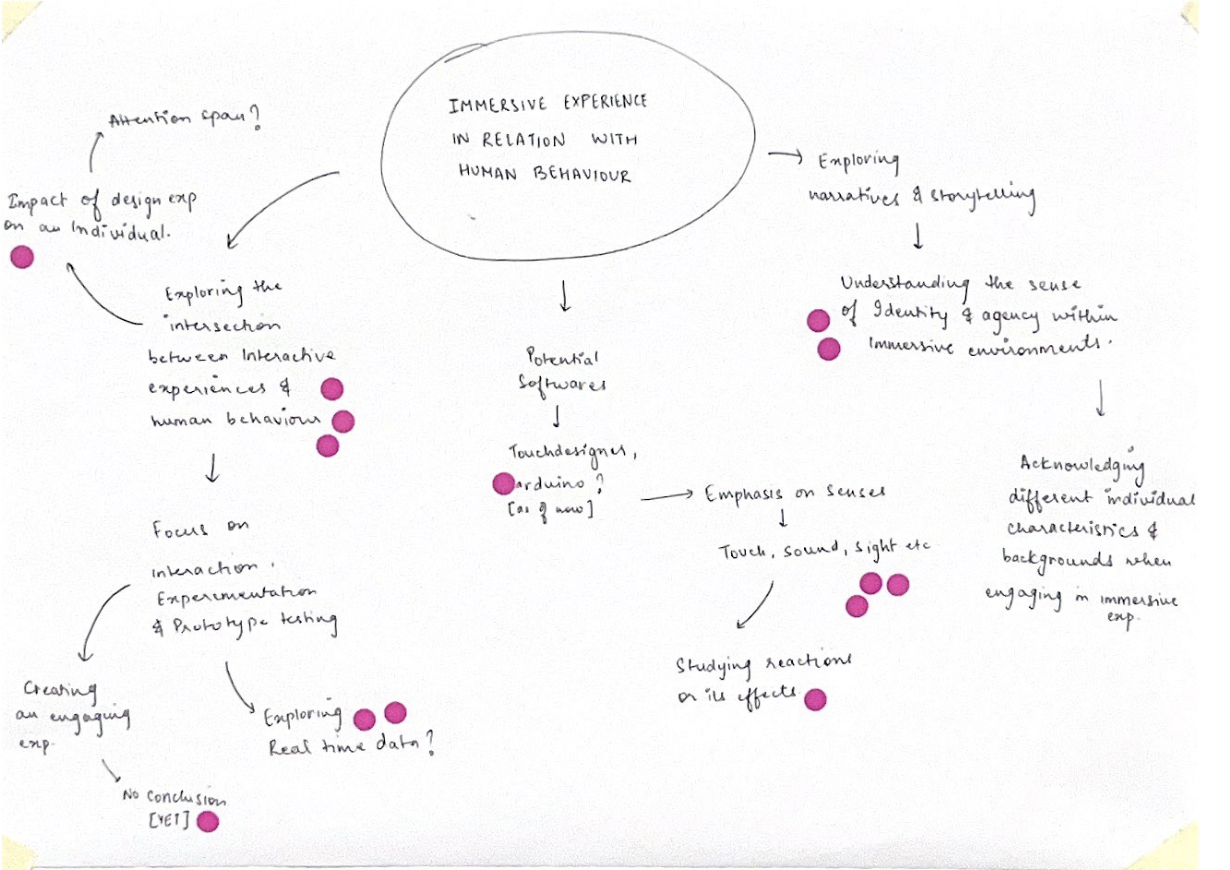 IMMERSIVE EXPERIENCE
IN RELATION WITH
HUMAN BEHAVIOUR
Attention span?
Impact of design exp
on an Individual.
Exploring the
intersection
between Interactive
experiences &
human behaviour
Focus on
interaction.
Experimentation
& Prototype testing
Creating
an engaging
exp.
No conclusion
[YET]
Exploring
Real time data?
Potential
Softwares
Touchdesigner,
arduino?
[as of now]
Emphasis on senses
Touch, sound, sight etc
Studying reactions
or its effects.
Exploring
narratives & storytelling
Understanding the sense
of Identity & agency within
Immersive environments.
Acknowledging
different individual
characteristics &
backgrounds when
engaging in immersive
exp.